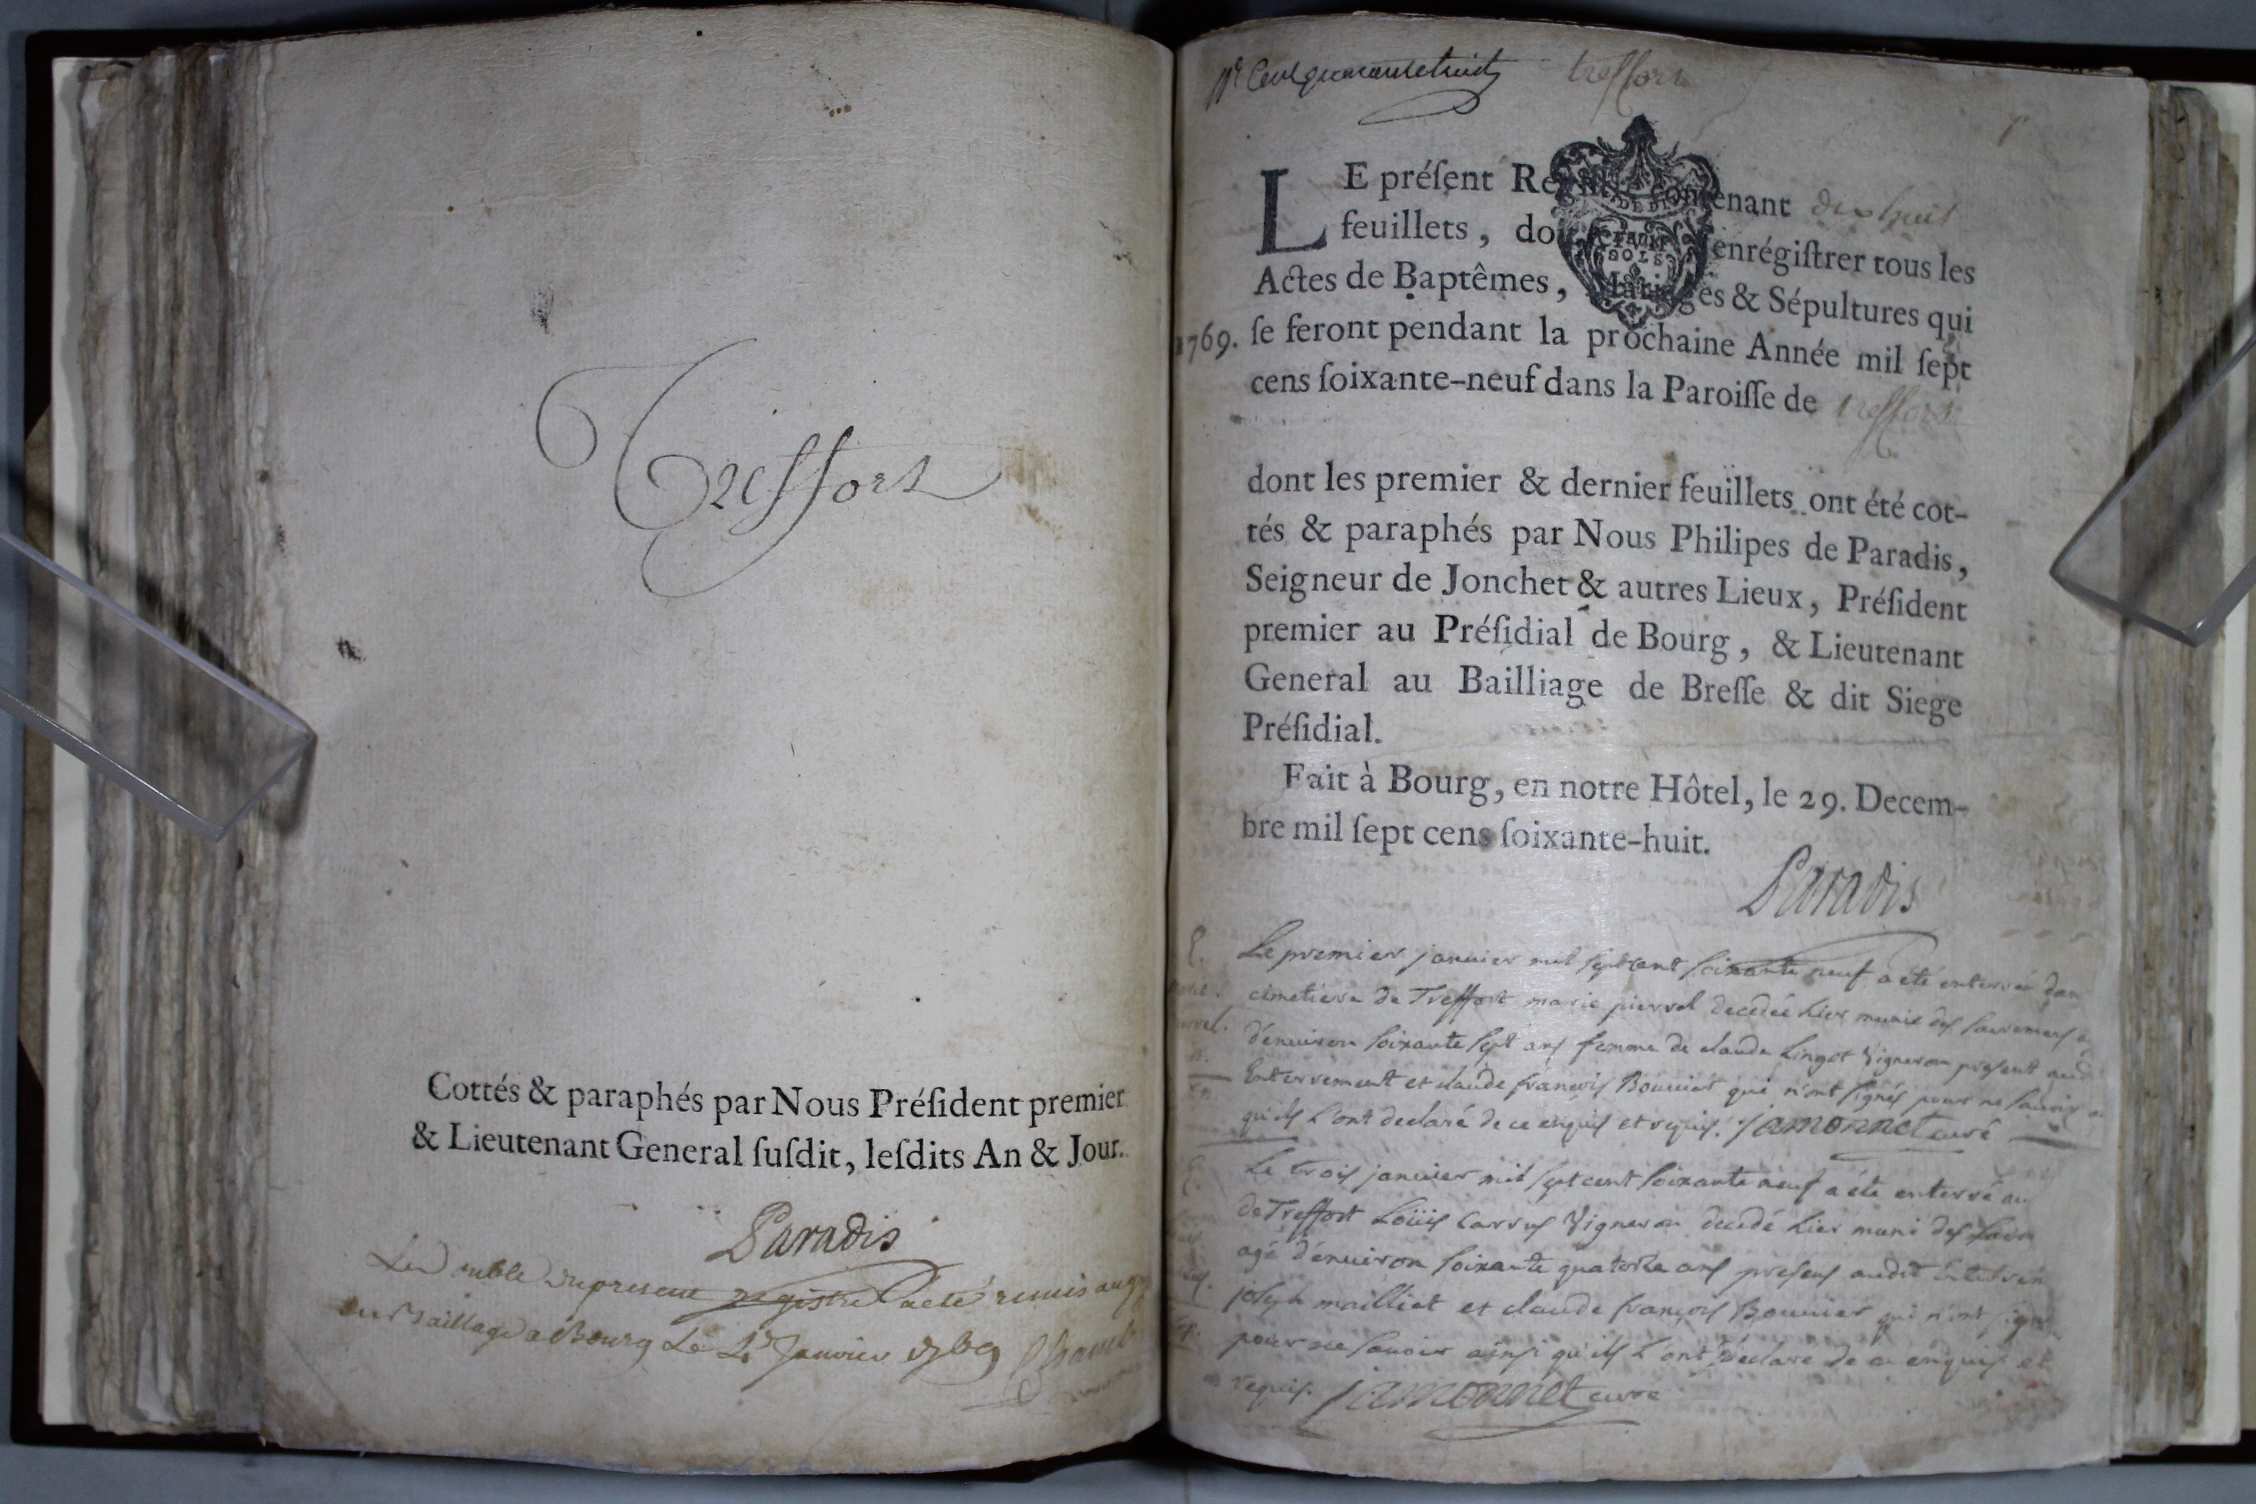 Treffort
Cottés & paraphés par Nous Préſident premier
& Lieutenant General ſuſdit, leſdits An & Jour.
Paradis
Le Double du present registre a eté remis au
du Baillage a Bourg Le Janvier 1769
Nº Cent quarantehuit treffort
LE préſent Regiſtre contenant dix huit
feuillets, enrégiſtrer tous les
Actes de Baptêmes, Mariages & Sépultures qui
1769. ſe feront pendant la prochaine Année mil ſept
cens ſoixante-neuf dans la Paroiſſe de treffort
dont les premier & dernier feuillets ont été cot-
tés & paraphés par Nous Philipes de Paradis,
Seigneur de Jonchet & autres Lieux, Préſident
premier au Préſidial de Bourg, & Lieutenant
General au Bailliage de Breſſe & dit Siege
Préſidial.
Fait à Bourg, en notre Hôtel, le 29. Decem-
bre mil ſept cens ſoixante-huit.
Paradis
E. Le premier janvier mil sept cent soixante neuf a eté enterrée dans
cimetiere de Treffort marie pierrel decedée hier munie des sacremens
d'environ soixante sept ans femme de claude Lingot Vigneron present audit
Enterrement et claude françois Bouvier qui n'ont signés pour ne savoir
qu'ils l'ont declaré de ce enquis et requis. jamonnet curé
E. Le trois janvier mil sept cent soixante neuf a eté enterré au
de Treffort Loüis Carrus Vigneron decedé hier muni des sacr
agé d'environ soixante quatorze ans presens audit Enterrem
joseph mailliet et claude françois Bouvier qui n'ont signé
pour ne savoir ainsi qu'ils l'ont declaré de ce enquis et
requis. jamonnet curé